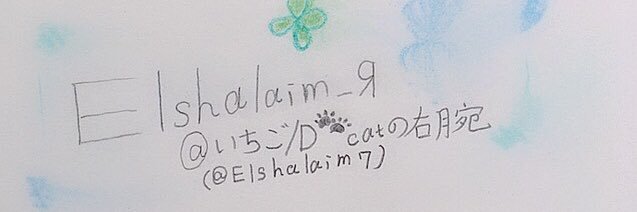 Elshalaim_Я
@いちご/D🐾catの右腕
(@Elshalaim7)